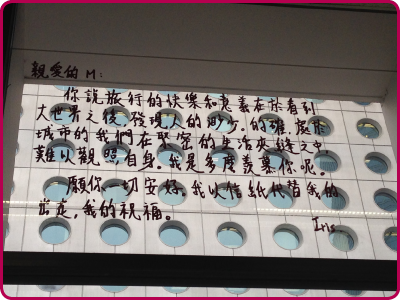 親愛的 M:
你說旅行的快樂和意義在於看到
大世界之後,發現人的渺小。的確,處於
城市的我們在緊密的生活夾縫之中,
難以觀照自身。我是多麼羡慕你呢。
願你一切安好,我以信紙代替我的
出走,我的祝福。
Iris